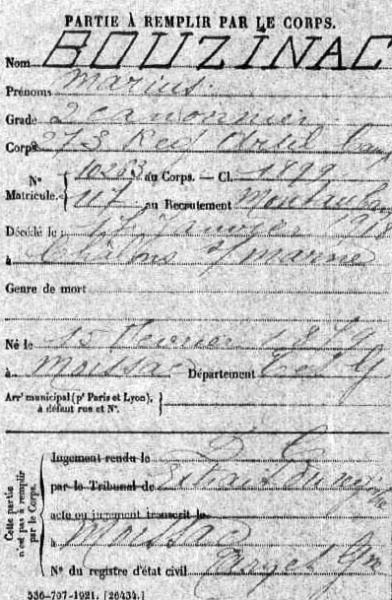 PARTIE À REMPLIR PAR LE CORPS.
Nom BOUZINAC
Prénoms Marius
Grade 2 canonnier
Corps 273 Reg Artil Camp
N° Matricule. { 10263 au Corps. — Cl. 1899
117 au Recrutement Montauban
Décédé le 17 Janvier 1918
à Châlons s/ marne
Genre de mort
Né le 15 Février 1879
à Moissac Département T et G
Arrt municipal (pr Paris et Lyon), à défaut rue et N°.
Cette partie n'est pas à remplir par le Corps.
Jugement rendu le
par le Tribunal de Extrait du
acte ou jugement transcrit le
à Moissac
N° du registre d'état civil
536-707-1921. [26434.]